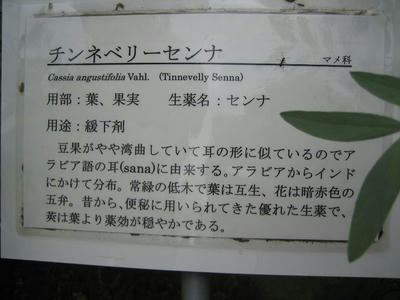 チンネベリーセンナ マメ科
Cassia angustifolia Vahl. (Tinnevelly Senna)
用部：葉、果実 生薬名：センナ
用途：緩下剤
豆果がやや湾曲していて耳の形に似ているのでア
ラビア語の耳(sana)に由来する。アラビアからインド
にかけて分布。常緑の低木で葉は互生、花は暗赤色の
五弁。昔から、便秘に用いられてきた優れた生薬で、
莢は葉より薬効が穏やかである。